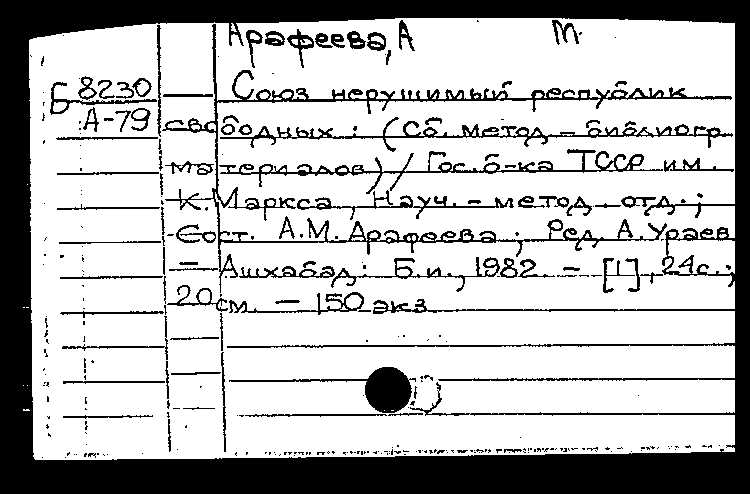 Арафеева, А М.
Б 8230 Союз нерушимый республик
А-79 свободных : (Сб. метод – библиогр.
материалов) / Гос. б-ка ТССР им.
К. Маркса, Науч. – метод. отд. ;
Сост. А.М. Арафеева ; Ред. А. Ураев
– Ашхабад : Б.и., 1982. – [1], 24с. ;
20 см. – 150 экз